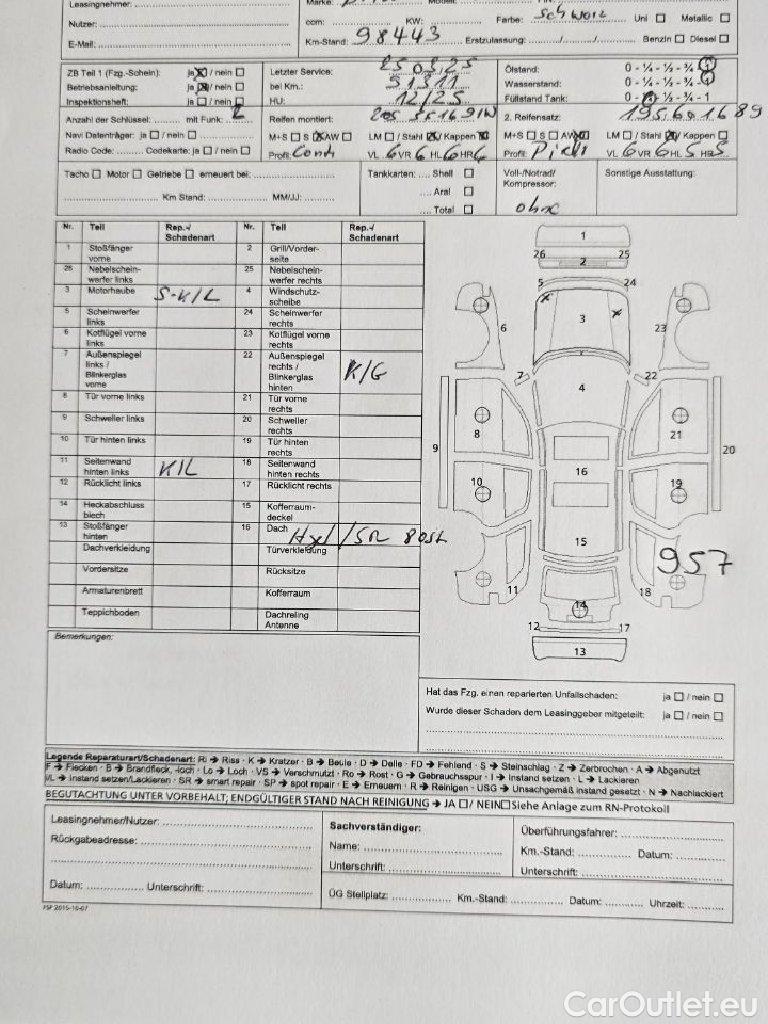 Leasingnehmer: Marke: Modell:
Nutzer: ccm: KW: Farbe: schwarz Uni Metallic
E-Mail: Km-Stand: 98443 Erstzulassung: / / Benzin Diesel
ZB Teil 1 (Fzg.-Schein): ja / nein Letzter Service: 25 03.25 Ölstand: 0 - ¼ - ½ - ¾ - 1
Betriebsanleitung: ja / nein bei Km.: 91311 Wasserstand: 0 - ¼ - ½ - ¾ - 1
Inspektionsheft: ja / nein HU: 12/25 Füllstand Tank: 0 - ¼ - ½ - ¾ - 1
Anzahl der Schlüssel: mit Funk: 2 Reifen montiert: 205 55 16 91W 2. Reifensatz: 195 60 16 89
Navi Datenträger: ja / nein M+S S AW LM / Stahl / Kappen M+S S AW LM / Stahl / Kappen
Radio Code: Codekarte: ja / nein Profil: Conti VL 6 VR 6 HL 6 HR 6 Profil: VL 6 VR 6 HL 5 HR 5
Tacho Motor Getriebe erneuert bei: Tankkarten: Shell Voll-/Notrad/ Sonstige Ausstattung:
Aral Kompressor:
Km Stand: MM/JJ: Total ohne
Nr. Teil Rep.-/ Schadenart Nr. Teil Rep.-/ Schadenart
1 Stoßfänger vorne 2 Grill/Vorder- seite
26 Nebelschein- werfer links 25 Nebelschein- werfer rechts
3 Motorhaube S-K/L 4 Windschutz- scheibe
5 Scheinwerfer links 24 Scheinwerfer rechts
6 Kotflügel vorne links 23 Kotflügel vorne rechts
7 Außenspiegel links / Blinkerglas vorne 22 Außenspiegel rechts / Blinkerglas hinten K/G
8 Tür vorne links 21 Tür vorne rechts
9 Schweller links 20 Schweller rechts
10 Tür hinten links 19 Tür hinten rechts
11 Seitenwand hinten links K/L 18 Seitenwand hinten rechts
12 Rücklicht links 17 Rücklicht rechts
14 Heckabschluss blech 15 Kofferraum- deckel
13 Stoßfänger hinten 16 Dach
Dachverkleidung Türverkleidung
Vordersitze Rücksitze
Armaturenbrett Kofferraum
Teppichboden Dachreling Antenne
1
26 2 25
5 24
6 3 23
7 4 22
8 21
9 20
10 16 19
15
957
11 14 18
12 17
13
Bemerkungen:
Hat das Fzg. einen reparierten Unfallschaden: ja / nein
Wurde dieser Schaden dem Leasinggeber mitgeteilt: ja / nein
Legende Reparaturart/Schadenart: Ri → Riss · K → Kratzer · B → Beule · D → Delle · FD → Fehlend · S → Steinschlag · Z → Zerbrochen · A → Abgenutzt
F → Flecken · B → Brandfleck, -loch · Lo → Loch · VS → Verschmutzt · Ro → Rost · G → Gebrauchsspur · I → Instand setzen · L → Lackieren
I/L → Instand setzen/Lackieren · SR → smart repair · SP → spot repair · E → Erneuern · R → Reinigen · USG → Unsachgemäß instand gesetzt · N → Nachlackiert
BEGUTACHTUNG UNTER VORBEHALT; ENDGÜLTIGER STAND NACH REINIGUNG → JA / NEIN Siehe Anlage zum RN-Protokoll
Leasingnehmer/Nutzer: Sachverständiger: Überführungsfahrer:
Rückgabeadresse: Name: Km.-Stand: Datum:
Unterschrift: Unterschrift:
Datum: Unterschrift: ÜG Stellplatz: Km.-Stand: Datum: Uhrzeit:
CarOutlet.eu